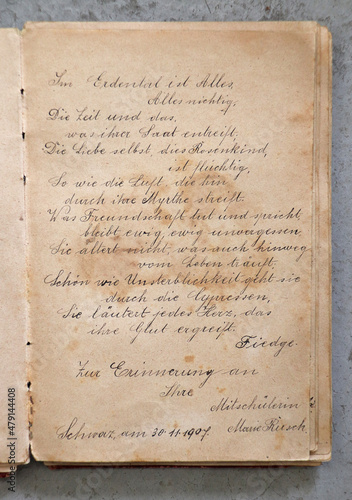 Im Erdental ist Alles,
Alles nichtig,
Die Zeit und das,
was ihrer Saat entreift.
Die Liebe selbst, dies Rosenkind,
ist flüchtig,
So wie die Luft, die hin
durch ihre Myrthe streift.
Was Freundschaft tut und spricht,
bleibt ewig, ewig unvergessen.
Sie altert nicht, was auch hinweg
vom Leben träuft.
Schön wie Unsterblichkeit geht sie
durch die Cypressen,
Sie läutert jedes Herz, das
ihre Glut ergreift.
Fiedge.
Zur Erinnerung an
Ihre
Mitschülerin
Schwaz, am 30.11.1907. Marie
Adobe Stock | #479144408